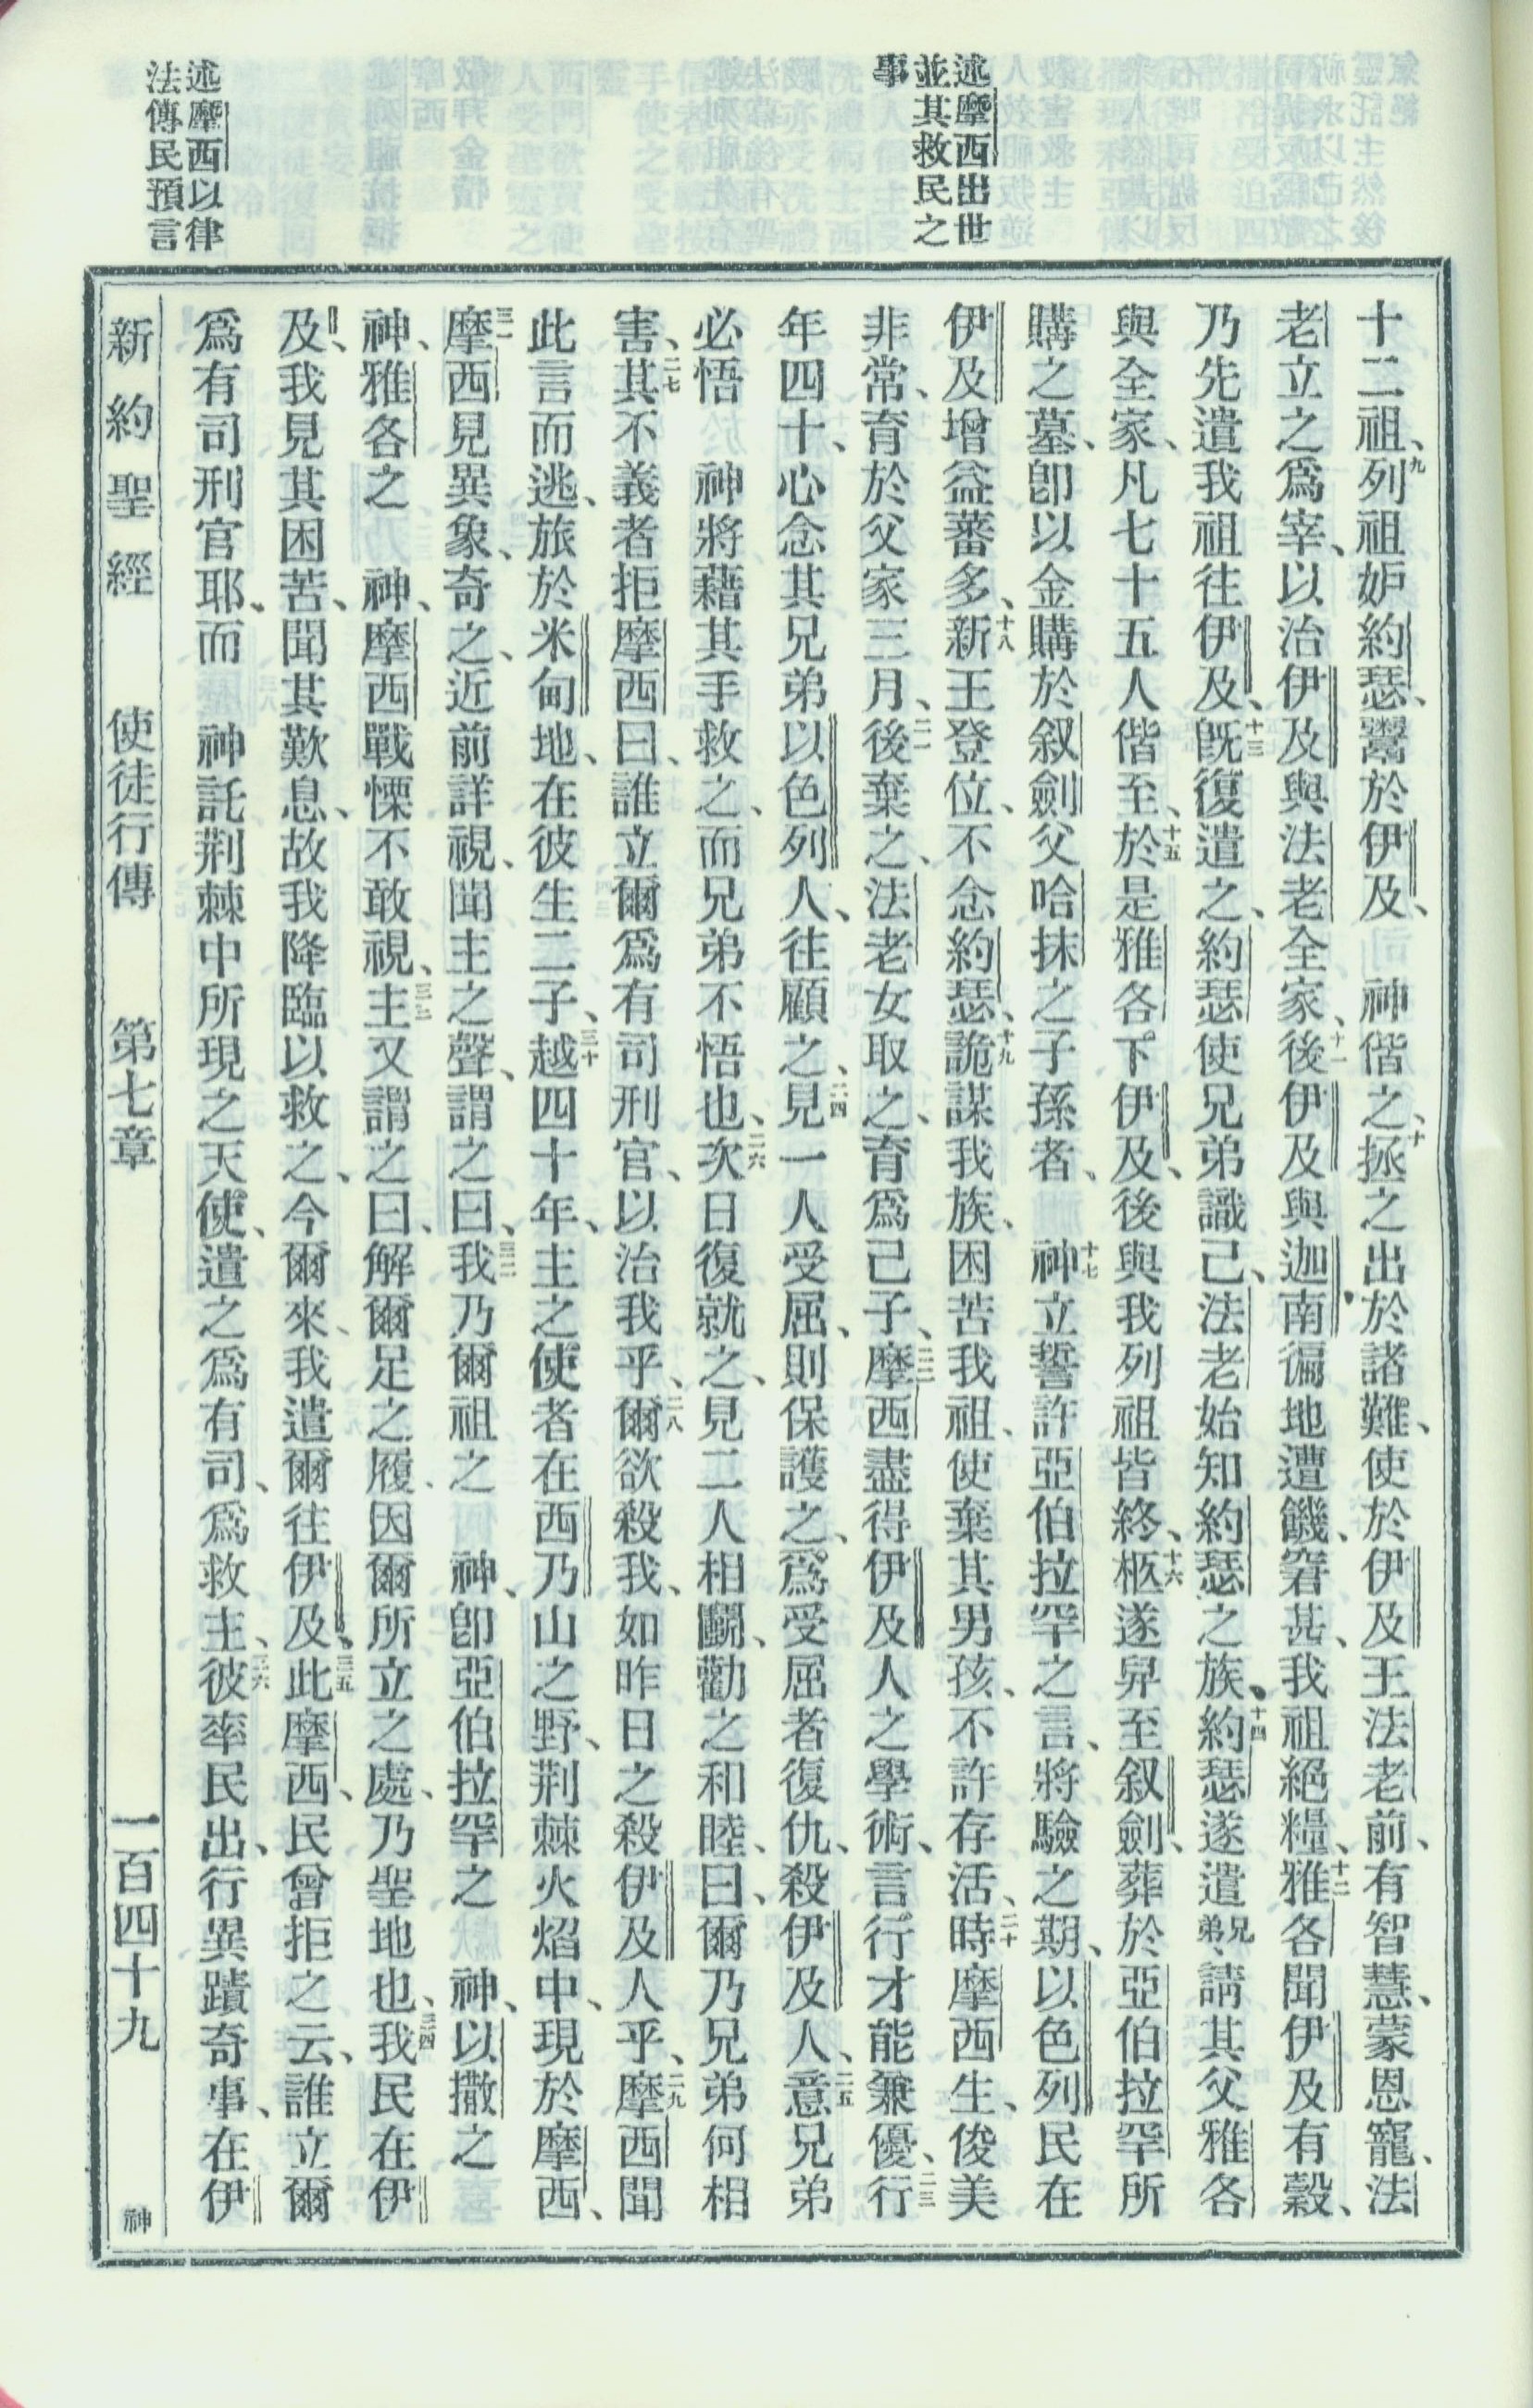 述摩西出世
並其救民之
事
述摩西以律
法傳民預言
十二祖、九列祖妒約瑟、鬻於伊及、　神偕之、十拯之出於諸難、使於伊及王法老前、有智慧、蒙恩寵、法
老立之爲宰、以治伊及與法老全家、十一後伊及與迦南徧地遭饑、窘甚、我祖絕糧、十二雅各聞伊及有穀、
乃先遣我祖往伊及、十三旣復遣之、約瑟使兄弟識己、法老始知約瑟之族、十四約瑟遂遣兄弟、請其父雅各
與全家、凡七十五人偕至、十五於是雅各下伊及、後與我列祖皆終、十六柩遂舁至叙劍、葬於亞伯拉罕所
購之墓、卽以金購於叙劍父哈抹之子孫者、　十七神立誓許亞伯拉罕之言、將驗之期、以色列民在
伊及增益蕃多、十八新王登位、不念約瑟、十九詭謀我族、困苦我祖、使棄其男孩、不許存活、二十時摩西生、俊美
非常、育於父家三月、二一後棄之、法老女取之、育爲己子、二二摩西盡得伊及人之學術、言行才能兼優、二三行
年四十、心念其兄弟以色列人、往顧之、二四見一人受屈、則保護之、爲受屈者復仇、殺伊及人、二五意兄弟
必悟　神將藉其手救之、而兄弟不悟也、二六次日復就之、見二人相鬭、勸之和睦、曰、爾乃兄弟何相
害、二七其不義者拒摩西曰、誰立爾爲有司刑官、以治我乎、二八爾欲殺我、如昨日之殺伊及人乎、二九摩西聞
此言而逃、旅於米甸地、在彼生二子、三十越四十年、主之使者在西乃山之野、荆棘火焰中、現於摩西、
三一摩西見異象、奇之、近前詳視、聞主之聲、謂之曰、三二我乃爾祖之　神、卽亞伯拉罕之　神、以撒之
神、雅各之　神、摩西戰慄不敢視、三三主又謂之曰、解爾足之履、因爾所立之處、乃聖地也、三四我民在伊
及、我見其困苦、聞其歎息、故我降臨以救之、今爾來、我遣爾往伊及、三五此摩西、民曾拒之云、誰立爾
爲有司刑官耶、而　神託荆棘中所現之天使、遣之爲有司、爲救主、三六彼率民出、行異蹟奇事、在伊
新約聖經　使徒行傳　第七章　一百四十九　神